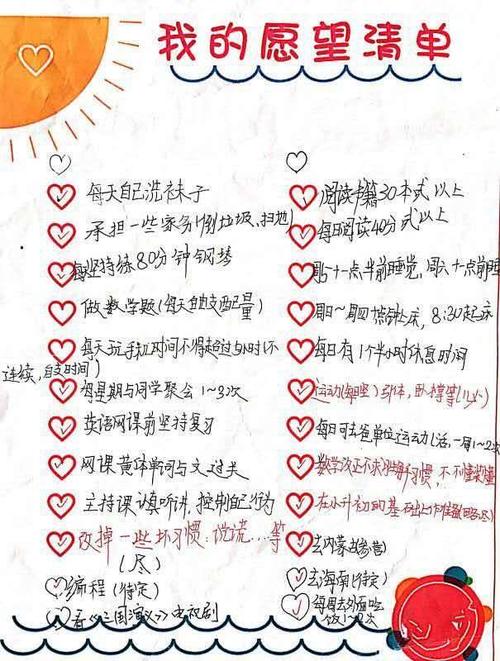 我的愿望清单
每天自己洗袜子
承担一些家务(倒垃圾,扫地)
每坚持练80分钟钢琴
做数学题(每天自支配量)
每天玩手机时间不得超过 小时(不
连续,自支时间)
每星期与同学聚会1~3次
英语网课前坚持复习
网课 单词与文过关
主持课认真听讲,控制自己
改掉一些坏习惯:说谎...等
(尽)
编程(待定)
看《三国演义》电视剧
阅读书籍30本或以上
每日阅读40分或以上
周五十一点半前睡觉,周六十点前睡
周日~周四 点 床,8:30起床
每日有1个半小时休息时间
运动(每日坚)引体,卧撑等
每日可去爸单位运动1次,一周1~2次
数学 习惯,不懂
在小升初的基础上
去内蒙古露营
去海南(待定)
每周去外面吃
饭1~2次